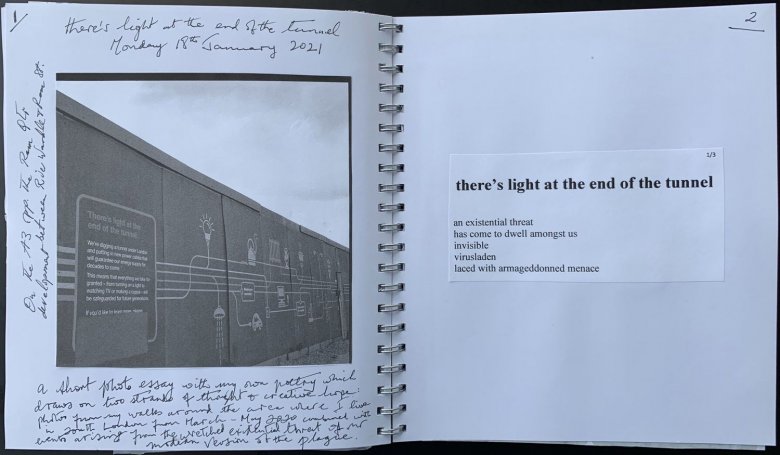 1
there's light at the end of the tunnel
Monday 18th January 2021
On the A3 opp. the Ram Qtr
development between River Wandle & Ram St.
'There's light at the
end of the tunnel.'
We're digging a tunnel under London
and putting in new power cables that
will guarantee our energy supply for
decades to come.
This means that everything we take for
granted – from turning on a light to
watching TV or making a cuppa – will
be safeguarded for future generations.
If you'd like to learn more
a short photo essay with my own poetry which
draws on two strands of thought & creative hope:
photos from my walks around the area where I live
in South London from March - May 2020 combined with
events arising from the wretched existential threat of our
modern version of the plague.
2
1/3
there's light at the end of the tunnel
an existential threat
has come to dwell amongst us
invisible
virusladen
laced with armageddonned menace